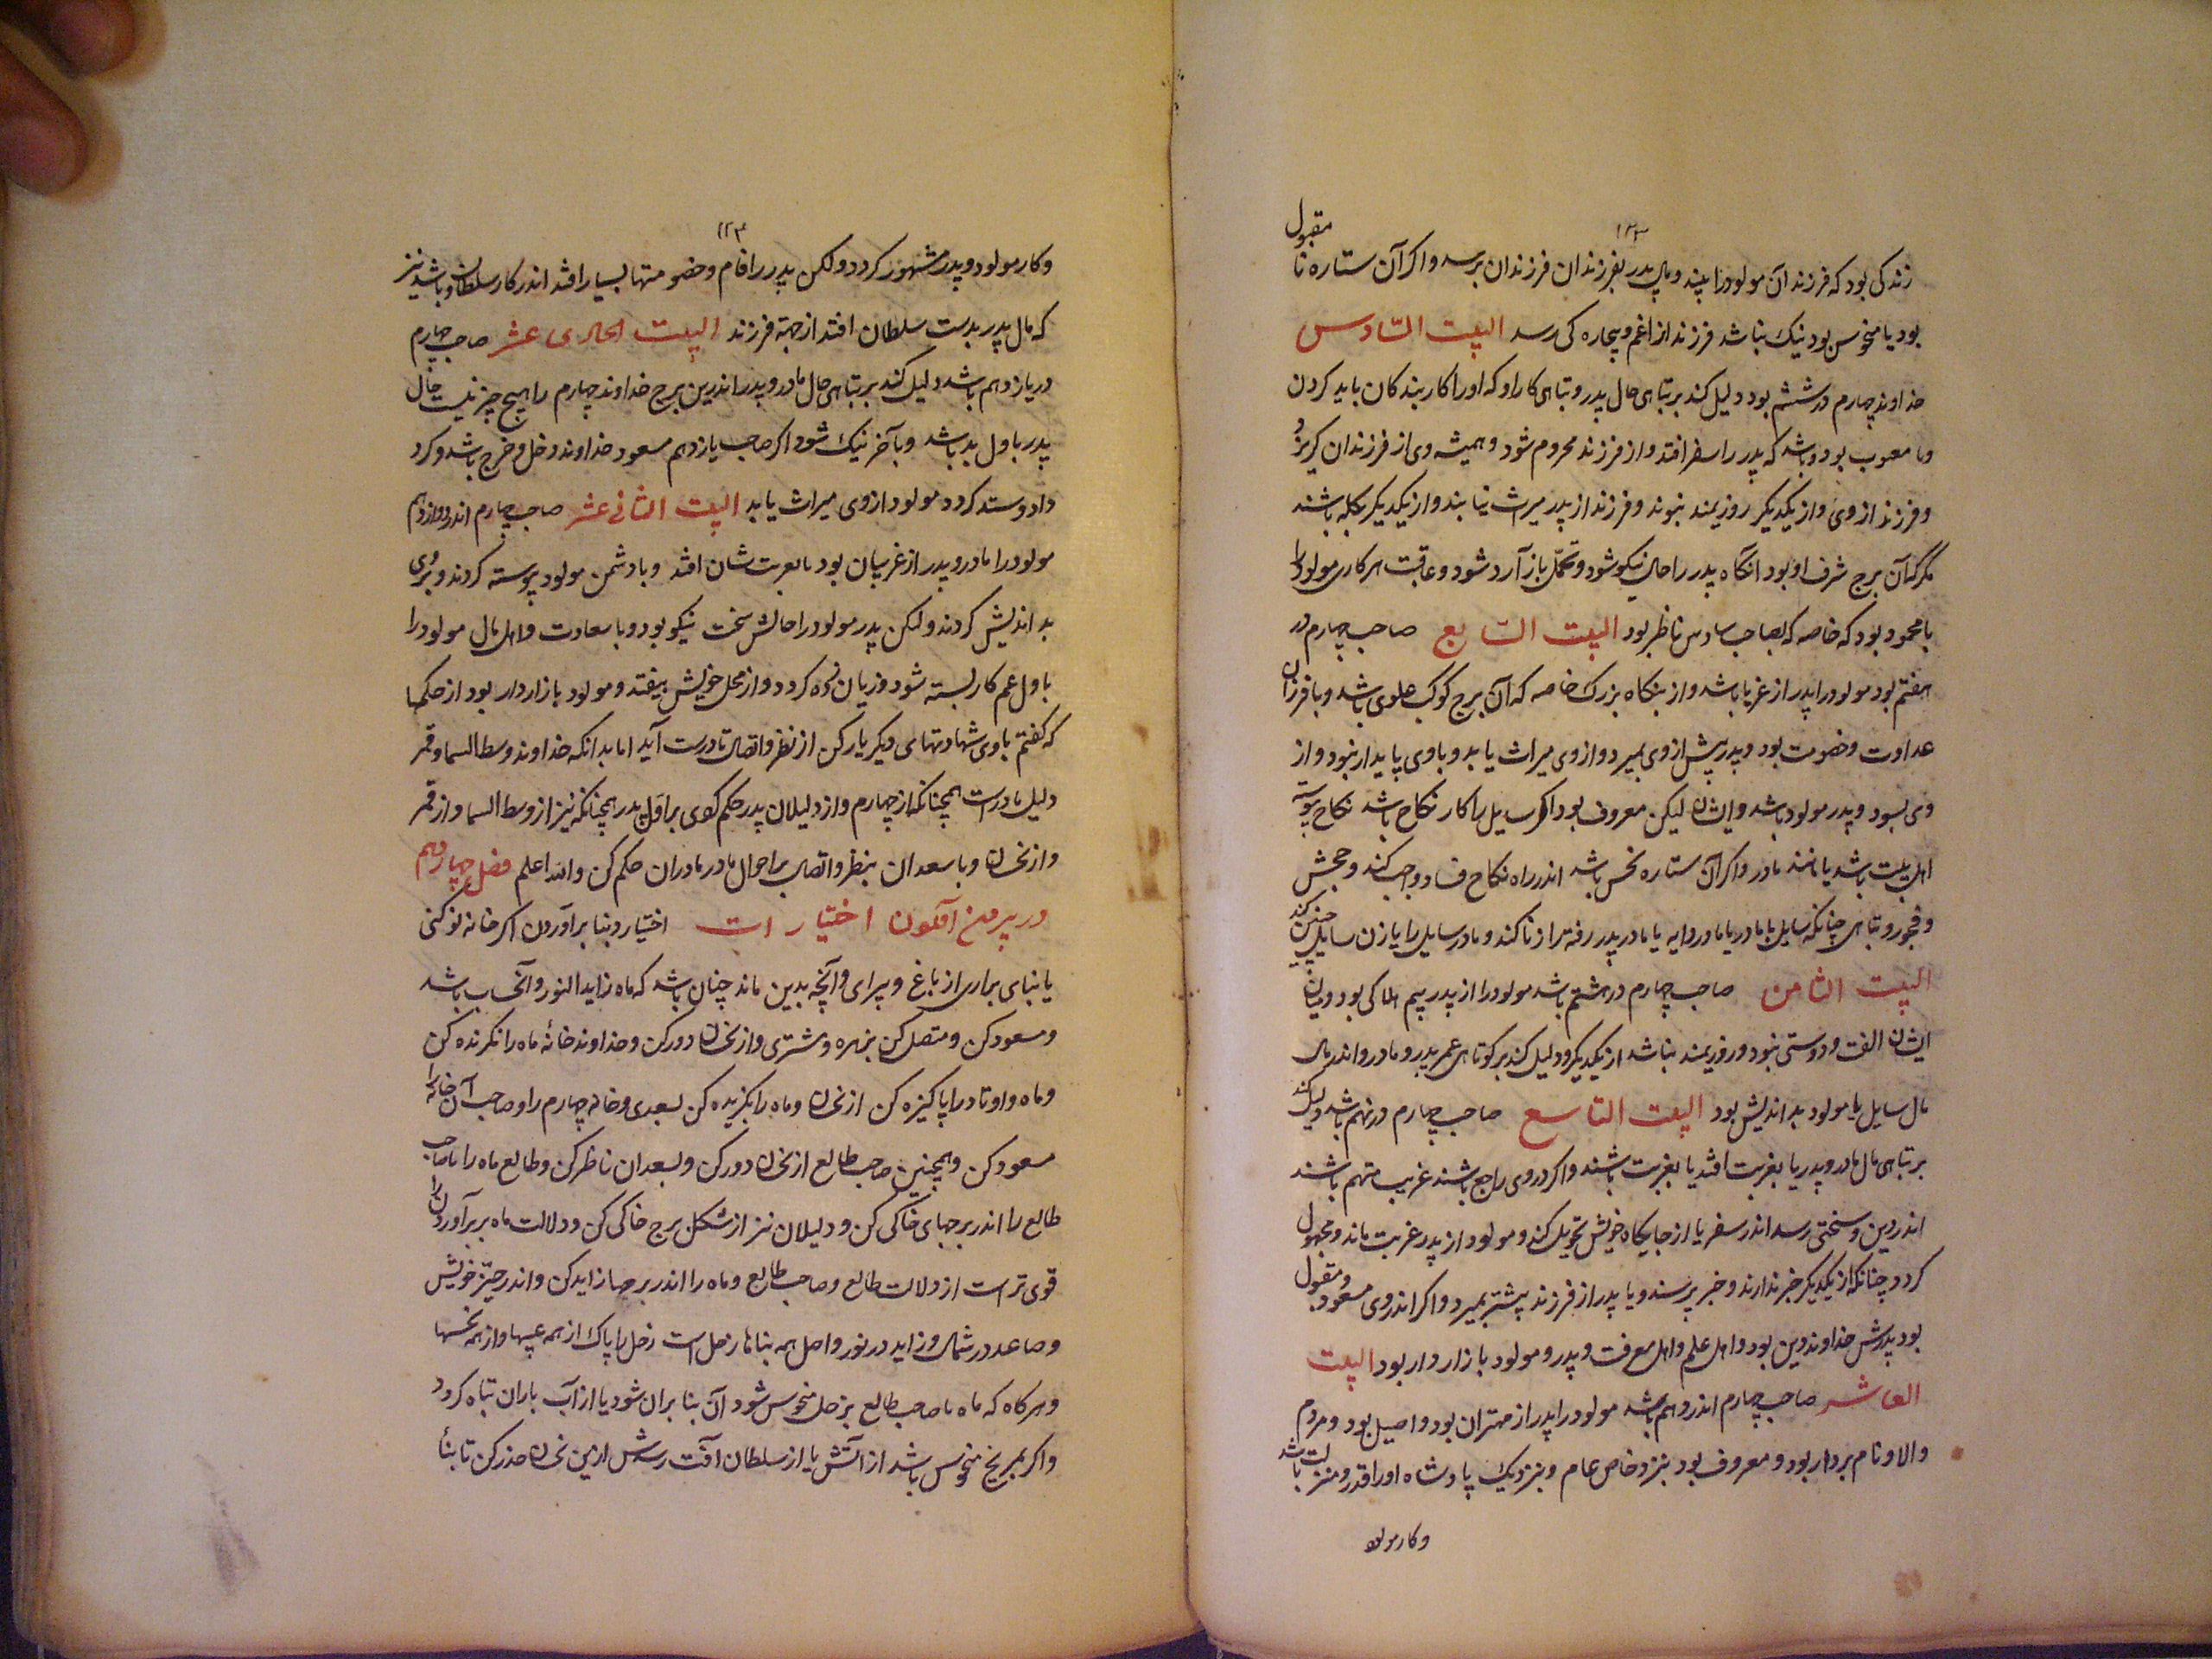 ۱۲۳
زندکی بود که فرزند آن مولود را بیند و مال پدر بفرزندان فرزندان برسد و اکر آن ستاره نا مقبول
بود یا منحوس بود نیک نباشد فرزند از غم و بیچاره کی رسد البیت السادس
خداوند چهارم در ششم بود دلیل کند بر تباهی حال پدر و تباهی کار او که او را کار بندکان باید کردن
و با معیوب بود و باشد که پدر را سفر افتد و از فرزند محروم شود و همیشه وی از فرزندان کریزد
و فرزند از وی و از یکدیکر روزیمند نبوند و فرزند از پدر میراث نیابند و از یکدیکر بکله باشند
مکر که آن برج شرف او بود آنکاه پدر را حال نیکو شود و تجمل باز آرد شود و عاقبت هر کاری مولود را
با محمود بود که خاصه که بصاحب سادس ناظر بود البیت السابع صاحب چهارم در
هفتم بود مولود را پدر از غربا باشد و از بنکاه بزرک خاصه که آن برج کوکب علوی باشد و با فرزندان
عداوت و خصومت بود و پدر پیش از وی بمیرد و از وی میراث یابد و با وی پایدار نبود و از
وی بسود و پدر مولود باشد و ایشان لیکن معروف بود اکر سایل را کار نکاح باشد نکاح
اهل بیت باشد یا مانند مادر و اکر آن ستاره نحس باشد اندر راه نکاح فساد واجب کند و
و فجور و تباهی چنانکه سایل با مادر یا مادر دایه یا مادر پدر رفته را زنا کند و مادر سایل را یا زن سایل چنین کند
البیت الثامن صاحب چهارم در هشتم باشد مولود را از پدر بیم هلاکی بود و میان
ایشان الفت و دوستی نبود و روزیمند نباشد از یکدیکر و دلیل کند بر کوتاهی عمر پدر و مادر و اندر مال
مال سایل یا مولود بد اندیش بود البیت التاسع صاحب چهارم در نهم باشد دلیل کند
بر تباهی مال مادر و پدر یا بغربت افتد یا بغربت باشند و اکر در وی راجع باشند غریب متهم باشند
اندر دین و سختی رسد اندر سفر یا از جایکاه خویش تحویل کند و مولود از پدر غربت ماند و مجهول
کردد چنانکه از یکدیکر خبر ندارند و خبر پرسند و یا پدر از فرزند پیشتر بمیرد و اکر اندر وی مسعود و مقبول
بود پدرش خداوند دین بود و اهل علم و اهل معرفت و پدر و مولود بازار دار بود البیت
العاشر صاحب چهارم اندر دهم باشد مولود را پدر از مهتران بود و اصیل بود و مردم
والا و نام بردار بود و معروف بود بنزد خاص عام و بنزدیک پادشاه او را قدر و منزلت باشد
و کار مولود
۱۲۳
و کار مولود و پدر مشهور کردد و لکن پدر را فام و خصومتها بسیار افتد اندر کار سلطان و باشد نیز
که مال پدر بدست سلطان افتد از جهة فرزند البیت الحادی عشر صاحب چهارم
در یازدهم باشد دلیل کند بر تباهی حال مادر و پدر اندرین برج خداوند چهارم را هیچ چیز نیست حال
پدر باول بد باشد و بآخر نیک شود اکر صاحب یازدهم مسعود خداوند دخل و خرج باشد و کرد
داد و ستد کردد مولود از وی میراث یابد البیت الثانی عشر صاحب چهارم اندر دوازدهم
مولود را مادر و پدر از غریبان بود یا بغربت شان افتد و با دشمن مولود پیوسته کردند و بروی
بد اندیش کردند و لکن پدر مولود را حالش سخت نیکو بود و با سعادت و اهل مال مولود را
باول عمر کار بسته شود و زیان زده کردد و از محل خویش بیفتد و مولود بازار دار بود از حکمها
که کفتم با وی شهادتهای دیکر یار کن از نظر و اتصال تا درست آید اما بدانکه خداوند وسط السما و قمر
دلیل مادر است همچنانکه از چهارم و از دلیلان پدر حکم کوی بر اول پدر همچنانکه نیز از وسط السما و از قمر
و از نحسان و با سعدان بنظر و اتصال بر احوال مادر مادران حکم کن والله اعلم فصل چهاردهم
در اختیارات اختیار و بنا برآوردن اکر خانه نو کنی
یا بنای برآری از باغ و سرای و آنچه بدین ماند چنان باشد که ماه زاید النور و الحساب باشد
و مسعود کن و متصل کن بزهره و مشتری و از نحسان دور کن و خداوند خانه ماه را نکرنده کن
و ماه و اوتاد را پاکیزه کن از نحسان و ماه را نکریده کن بسعدی و خانه چهارم را و صاحب آن خانه را
مسعود کن و همچنین صاحب طالع از نحسان دور کن و بسعدان ناظر کن و طالع ماه را با صاحب
طالع را اندر برجهای خاکی کن و دلیلان نیز از شکل برج خاکی کن و دلالت ماه بر برآوردن را
قوی تر است از دلالت طالع و صاحب طالع و ماه را اندر برجها زاید کن و اندر حیز خویش
و صاعد در شمال و زاید در نور و اصل همه بناها زحل است زحل را پاک از همه عیبها و از همه نحسها
و هرکاه که ماه با صاحب طالع بزحل منحوس شود آن بنا بران شود یا از آب باران تباه کردد
و اکر بمریخ منحوس باشد از آتش یا از سلطان آفت رسدش ازین نحسان حذر کن تا بنا